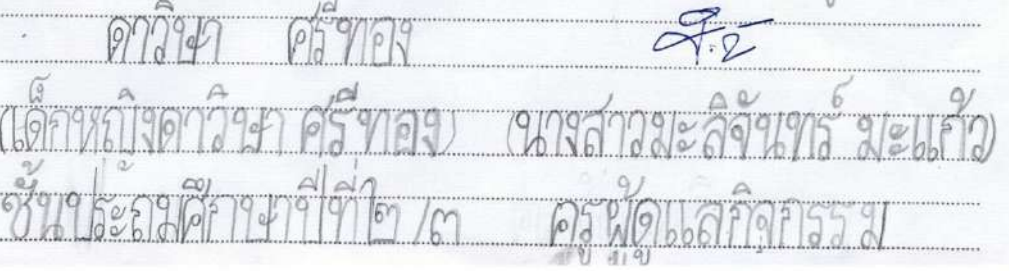 ดาวิษา ศรีทอง
(เด็กหญิงดาวิษา ศรีทอง) (นางสาวมะลิจันทร์ มะแก้ว)
ชั้นประถมศึกษาปีที่ ๒/๓ ครูผู้ดูแลกิจกรรม